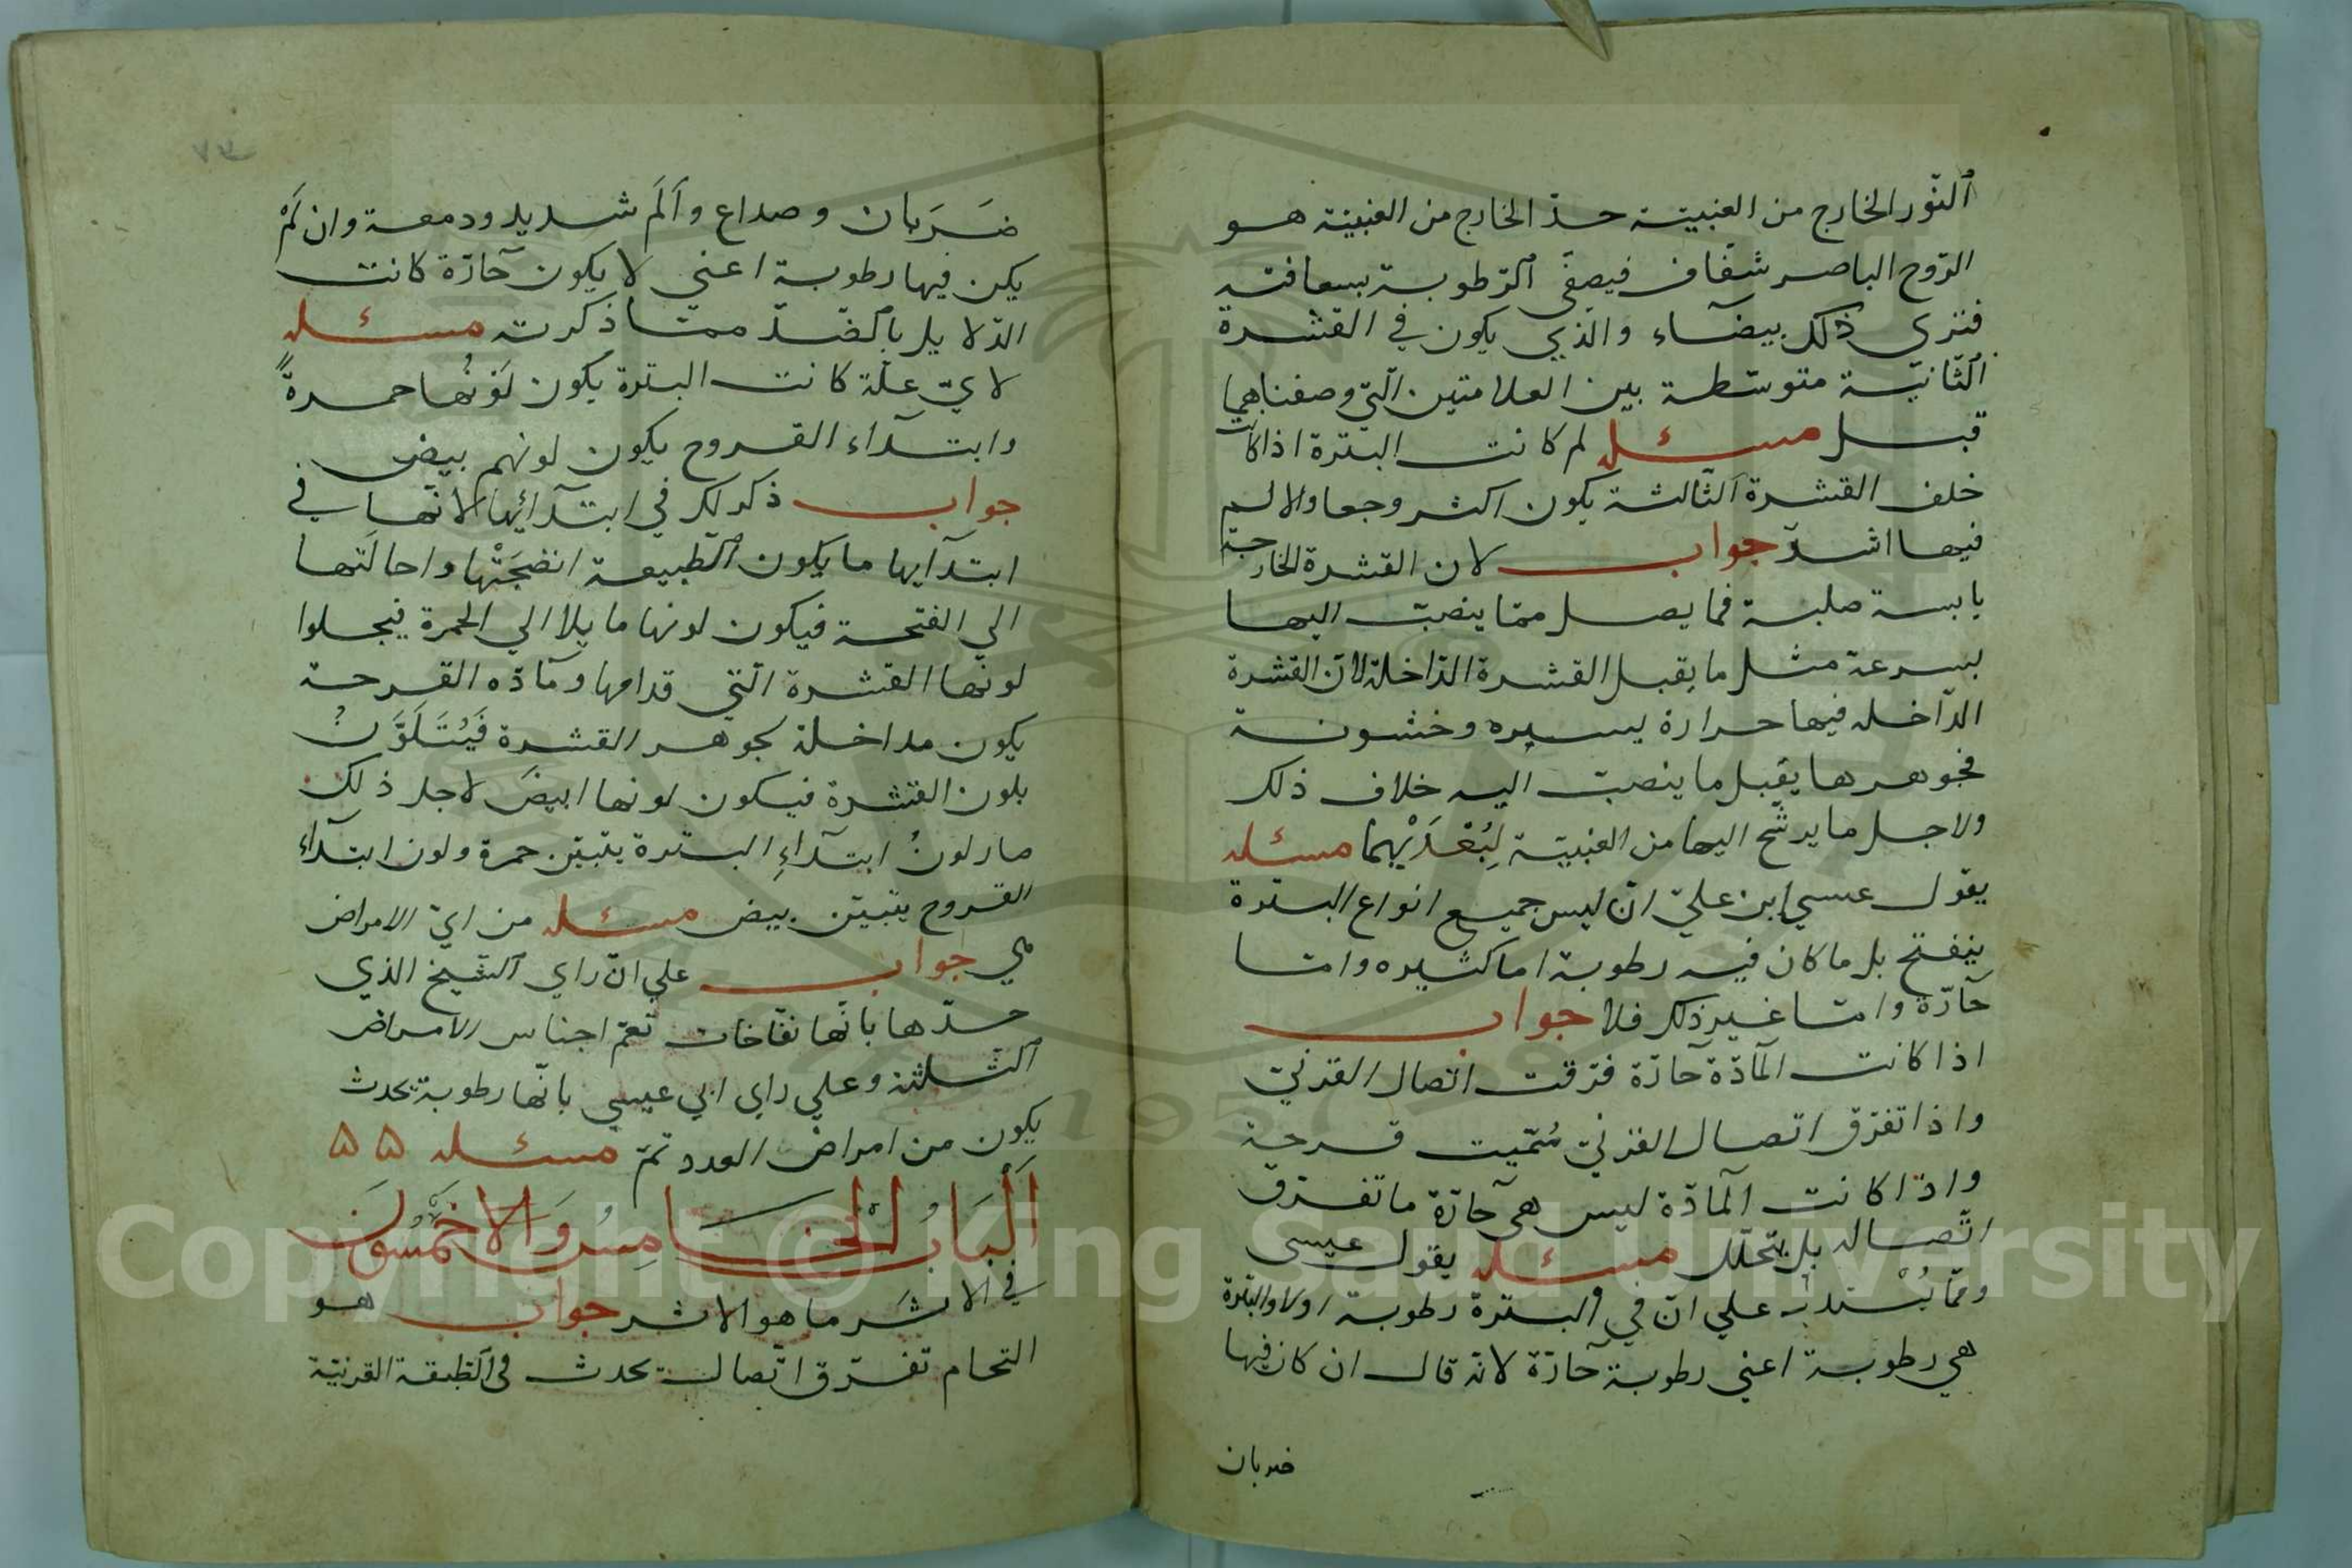 النّور الخارج من العنبيّة حدّ الخارج من العنبيّة هو
الرّوح الباصر شفّاف فيصفّي الرّطوبة بسعافته
فترى ذلك بيضآء والّذي يكون في القشرة
الثّانيّة متوسّطة بين العلامتين الّتي وصفناهما
قبل مسئله لم كانت البثرة اذا كانت
خلف القشرة الثّالثة يكون اكثر وجعا والالم
فيها اشدّ جواب لان القشرة الخارجة
يابسة صلبة فما يصل ممّا ينصبّ اليها
بسرعة مثل ما يقبل القشرة الدّاخلة لانّ القشرة
الدّاخله فيها حرارة يسيره وخشونة
فجوهرها يقبل ما ينصبّ اليه خلاف ذلك
ولاجل ما يرشّح اليها من العنبيّة لبعديهما مسئله
يقول عيسي ابن عليّ انّ ليس جميع انواع البثرة
ينفتح بل ما كان فيه رطوبة اما كثيره وامّا
حآرّة وامّا غير ذلك فلا جواب
اذا كانت المآدّة حآرّة فرّقت اتصال القرنيّ
واذا تفرّق اتصال القرنيّ سُمّيت قرحة
واذا كانت المآدّة ليس هي حآرّة ما تفرّق
اتّصاله بل يتحلّل مسئله يقول عيسى
وممّا يُستدلّ به علي انّ في البثرة رطوبة اولا والبثرة
هي رطوبة اعني رطوبة حآرّة لانّه قال ان كان فيها
ضربان
٧٣
ضَرَبان وصداع وألَم شديد ودمعة وان لَمْ
يكن فيها رطوبة اعني لا يكون حآرّة كانت
الدّلايل بالضّدّ ممّا ذكرته مسئله
لايّ علّة كانت البثرة يكون لَوْنُها حمرةً
وابتدآء القروح يكون لونهم بيض
جواب ذكر لك في ابتدآئها لانّها في
ابتدآيها ما يكون الطّبيعة انضَجَتْها واحالَتها
الي الفتحة فيكون لونها مايلا الي الحمرة فيجلوا
لونها القشرة الّتي قدامها ومآدّه القرحة
يكون مداخلة لجوهر القشرة فَيُتَلَوَّنُ
بلون القشرة فيكون لونها ابيضَ لاجل ذلك
صار لونُ ابتدآءِ البثرة يتبيّن حمرة ولون ابتدآء
القروح يتبيّن بيض مسئله من ايّ الامراض
هي جواب علي انّ راي الشّيخ الذي
حدّها بانّها نفّاخات تعمّ اجناس الامراض
الثّلثة وعلي راي ابي عيسي بانّها رطوبة تحدث
يكون من امراض العدد تمّ مسئله ۵۵
اَلْبَابُ الْخَامِسُ وَالاخَمْسُونَ
في الاثَر ما هو الاثر جواب هو
التحام تفرّق اتّصال يحدث في الطّبقة القرنيّة